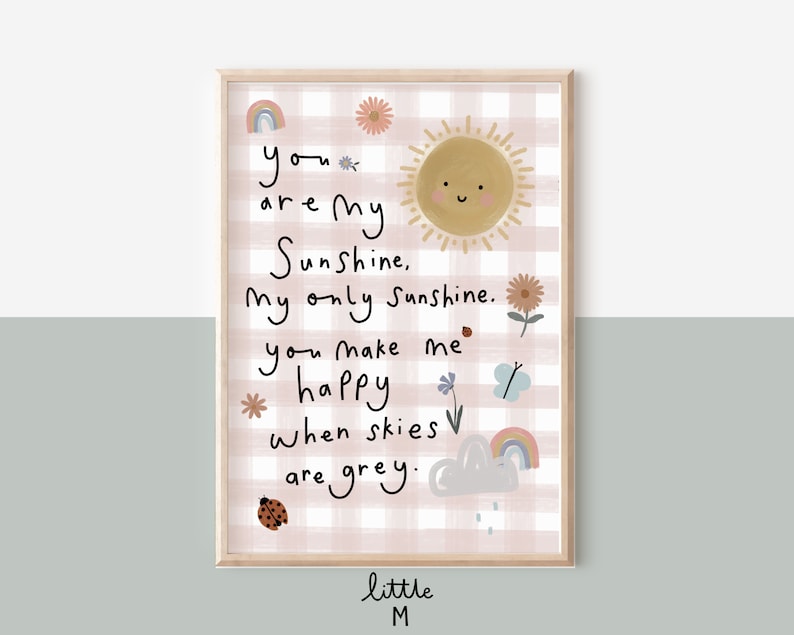 you
are my
Sunshine,
my only sunshine.
you make me
happy
when skies
are grey.
little
M